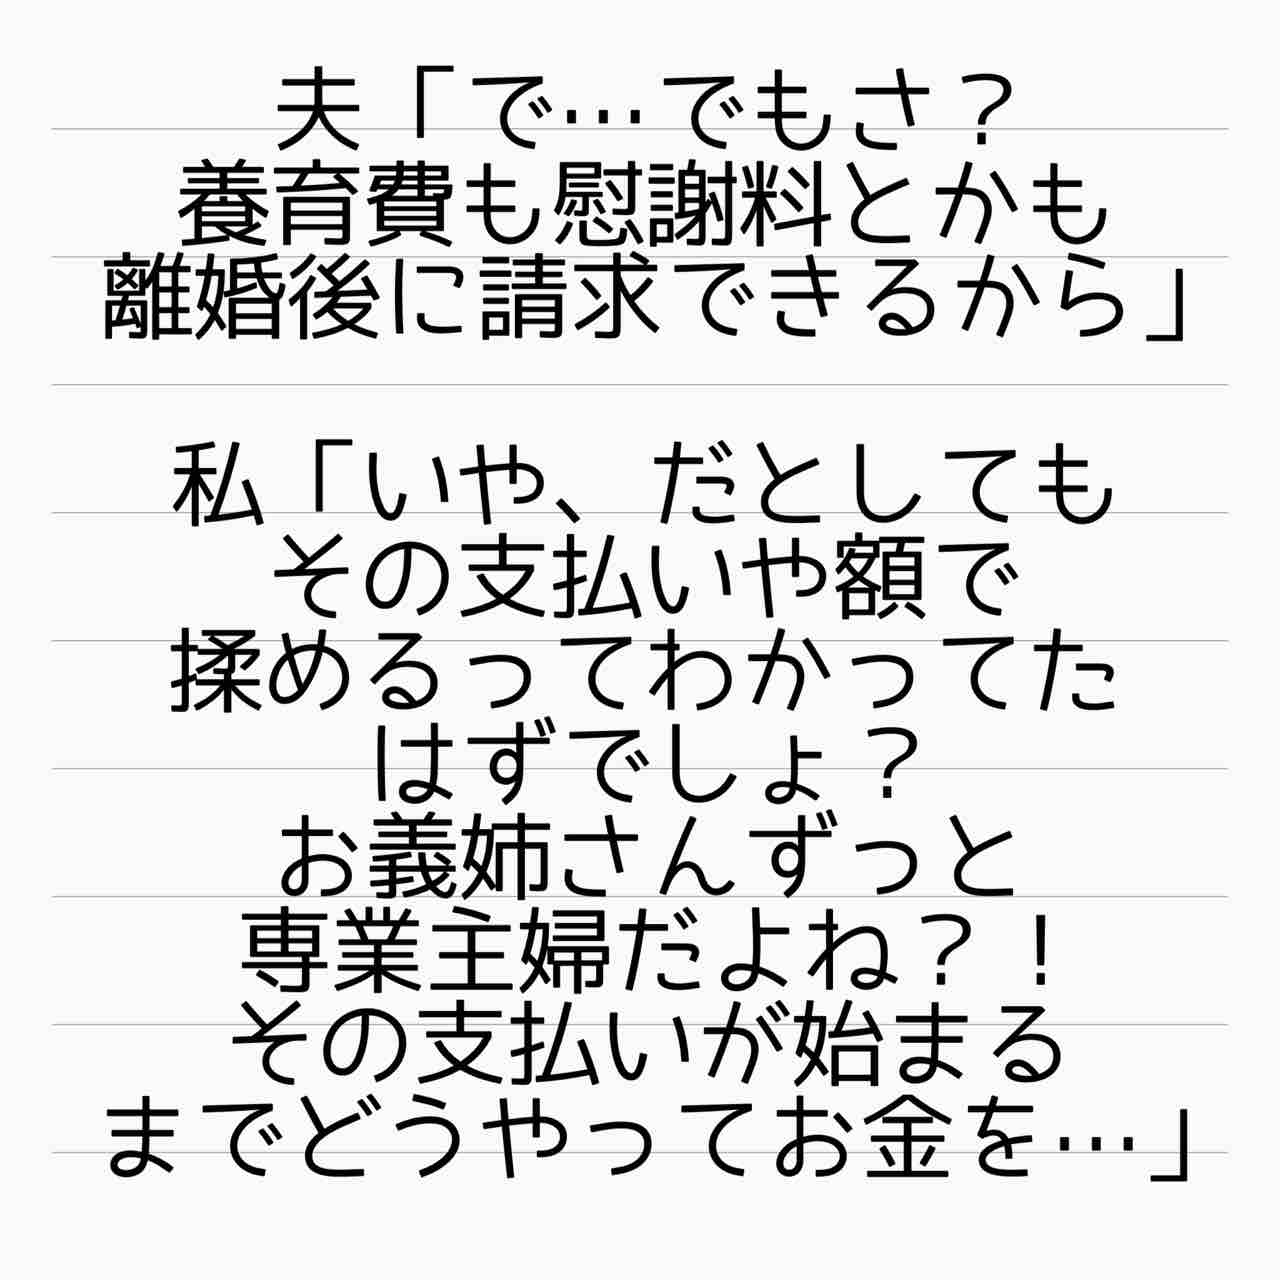 夫「で…でもさ？
養育費も慰謝料とかも
離婚後に請求できるから」
私「いや、だとしても
その支払いや額で
揉めるってわかってた
はずでしょ？
お義姉さんずっと
専業主婦だよね？！
その支払いが始まる
までどうやってお金を…」